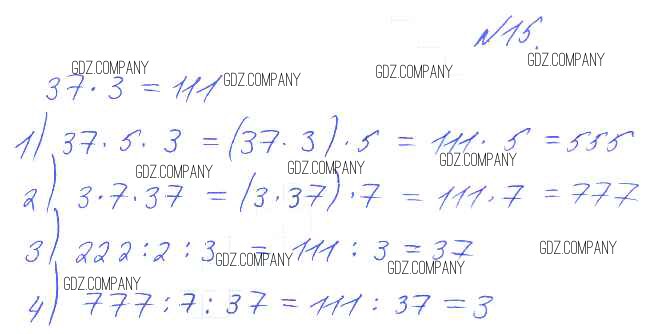 №15.
GDZ.COMPANY GDZ.COMPANY GDZ.COMPANY GDZ.COMPANY
37 · 3 = 111
1) 37 · 5 · 3 = (37 · 3) · 5 = 111 · 5 = 555
GDZ.COMPANY GDZ.COMPANY GDZ.COMPANY
2) 3 · 7 · 37 = (3 · 37) · 7 = 111 · 7 = 777
3) 222 : 2 : 3 = 111 : 3 = 37
GDZ.COMPANY GDZ.COMPANY GDZ.COMPANY
GDZ.COMPANY
4) 777 : 7 : 37 = 111 : 37 = 3